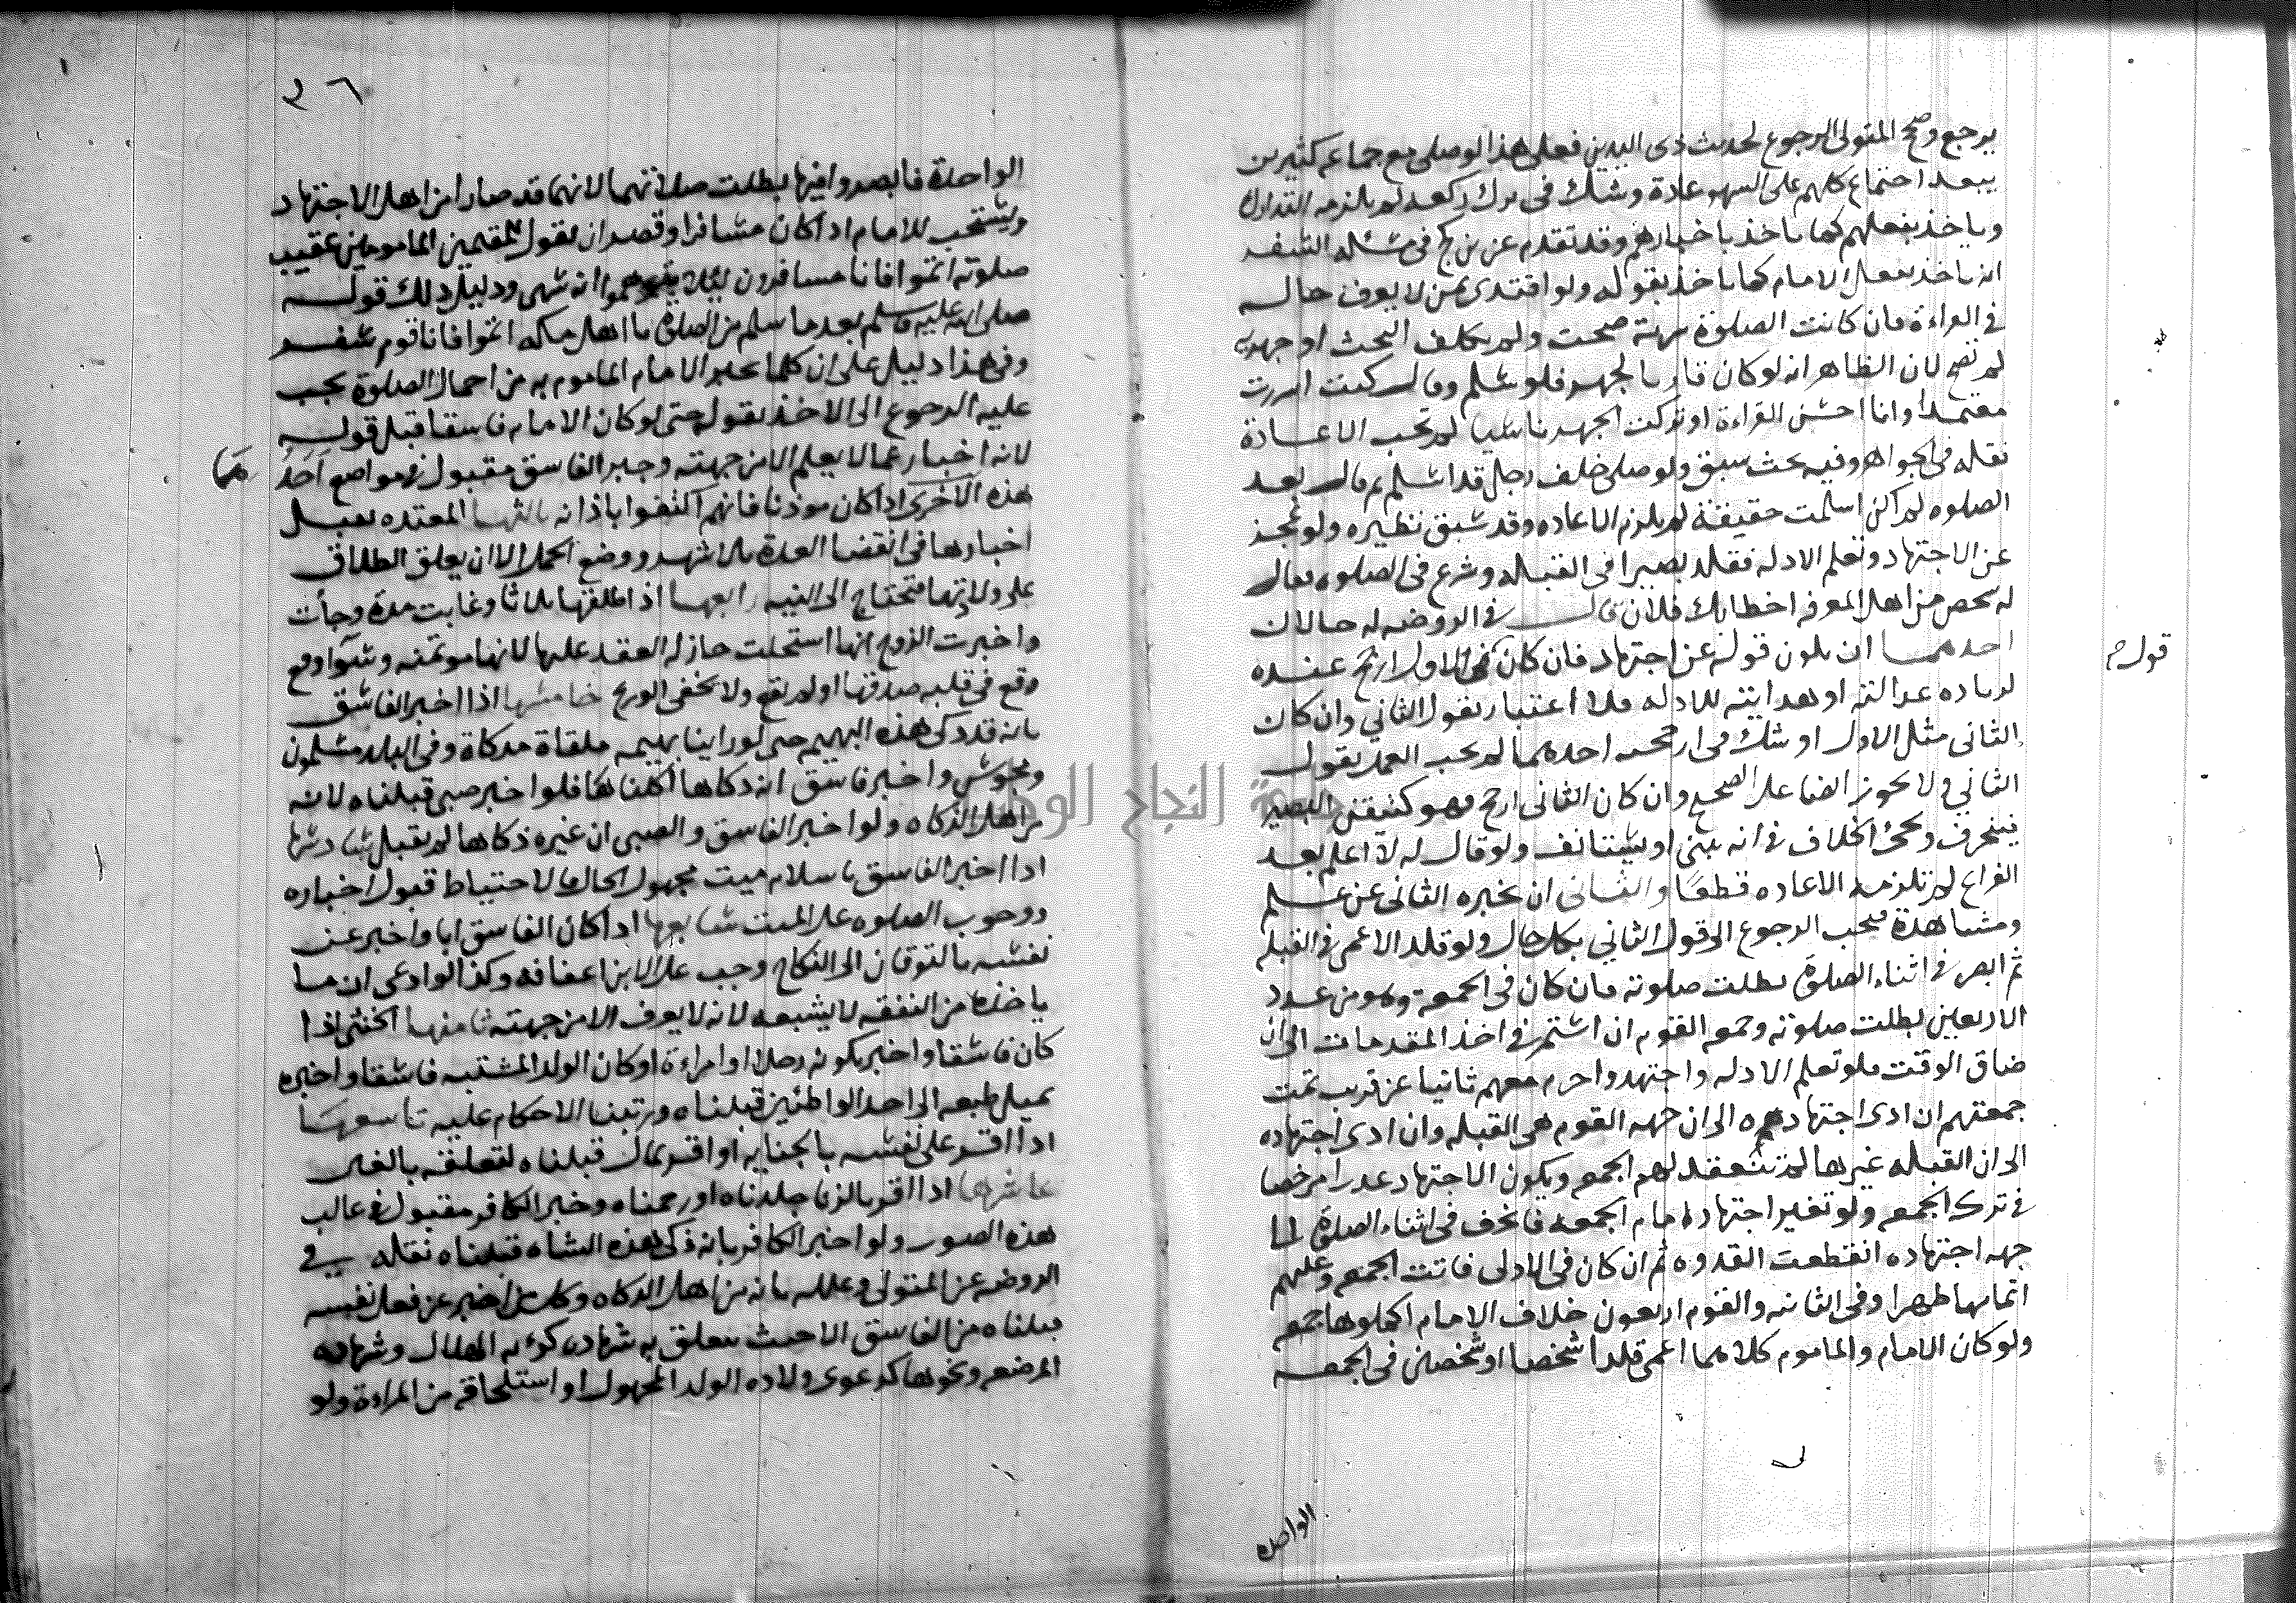 يرجع وصح المتولى الرجوع لحديث ذى اليدين فعلى هذا لو صلى مع جماعه كثيرين
يبعد اجتماع كلهم على السهو عادة وشك فى ترك ركعه لم يلزمه التدارك
وياخذ بفعلهم كما ياخذ باخبارهم وقد تقدم عن بن كج فى مسئله السفر
انه ياخذ بفعل الامام كما ياخذ بقوله ولو اقتدى بمن لا يعرف حاله
فى القراءة فان كانت الصلوة سرية صحت ولم يكلف البحث او جهرية
لم تصح لان الظاهر انه لو كان قاريا لجهر فلو سلم وقال كنت اسررت
معتمدا وانا احسن القراءة او تركت الجهر ناسيا لم تجب الاعادة
نقله فى الجواهر وفيه بحث سبق ولو صلى خلف رجل قد اسلم ثم قال بعد
الصلوه لم اكن اسلمت حقيقة لم يلزم الاعاده وقد سبق نظيره ولو عجز
عن الاجتهاد وتعلم الادله فقلد بصيرا فى القبله وشرع فى الصلوه فقال
له شخص من اهل المعرفه اخطا بك فلان قال فى الروضه له حالان
احدهما ان يكون قوله عن اجتهاد فان كان الاول ارجح عنده
قوله
لزياده عدالته او هدايته للادله فلا اعتبار بقول الثاني وان كان
الثانى مثل الاول او شك فى ارجحيه احدهما لم يجب العمل بقول
الثاني ولا يجوز ايضا على الصحيح وان كان الثانى ارجح فهو كتيقن البصير
فينحرف ويجئ الخلاف فى انه يبنى او يستانف ولو قال له لا اعلم بعد
الفراغ لم تلزمه الاعاده قطعا والثانى ان يخبره الثانى عن علم
ومشاهدة فيجب الرجوع الى قول الثاني بكل حال ولو قلد الاعمى فى القبله
ثم ابصر فى اثناء الصلوة بطلت صلوته فان كان فى الجمعة وهو من عدد
الاربعين بطلت صلوته وجمعه القوم ان استمر فى اخذ المقدمات الى ان
ضاق الوقت فلو تعلم الادله واجتهد واحرم معهم ثانيا عن قريب تمت
جمعتهم ان ادى اجتهاده الى ان جهه القوم هى القبله وان ادى اجتهاده
الى ان القبله غيرها لم تنعقد لهم الجمعه ويكون الاجتهاد عدرا مرخصا
فى ترك الجمعه ولو تغير اجتهاد امام الجمعه فانحرف فى اثناء الصلوة الى
جهه اجتهاده انقطعت القدوه ثم ان كان فى الاولى فاتت الجمعه وعليهم
اتمامها ظهرا وفى الثانيه والقوم اربعون خلاف الامام اكملوها جمعه
ولو كان الامام والماموم كلاهما اعمى قلدا شخصا او شخصين فى الجمعه
الواحده
٣٦
الواحدة فابصروا فيها بطلت صلاتهما لانهما قد صارا من اهل الاجتهاد
ويستحب للامام اذا كان مسافرا وقصر ان يقول للمقيمين المامومين عقيب
صلوته اتموا فانا مسافرون لئلا يتوهموا انه سهى ودليل ذلك قوله
صلى الله عليه وسلم بعد ما سلم من الصلوة يا اهل مكه اتموا فانا قوم سفر
وفى هذا دليل على ان كلما يخبر الامام الماموم به من احوال الصلوة يجب
عليه الرجوع الى الاخذ بقوله حتى لو كان الامام فاسقا قبل قوله
لانه اخبار عما لا يعلم الا من جهته وخبر الفاسق مقبول فى مواضع احدها
هذه الاخرى اذا كان موذنا فانهم اكتفوا باذانه ثالثها المعتده يقبل
اخبارها فى انقضا العدة بالاشهر ووضع الحمل الا ان يعلق الطلاق
على ولادتها فتحتاج الى البينه رابعها اذا طلقها ثلاثا وغابت مدة وجأت
واخبرت الزوج انها استحلت جاز له العقد عليها لانها موتمنه وسوآ وقع
وقع فى قلبه صدقها او لم يقع ولا يخفى الورع خامسها اذا اخبر الفاسق
بانه قد ذكى هذه البهيمه حتى لو راينا بهيمه ملقاة مذكاة وفى البلد مسلمون
ومجوس واخبر فاسق انه ذكاها اكلناها فلو اخبر صبى قبلناه لانه
من اهل الذكاه ولو اخبر الفاسق والصبى ان غيره ذكاها لم يقبل سادسها
اذا اخبر الفاسق باسلام ميت مجهول الحال فالاحتياط قبول اخباره
ووجوب الصلوه على الميت سابعها اذا كان الفاسق ابا واخبر عن
نفسه بالتوقان الى النكاح وجب على الابن اعفافه وكذا لو ادعى ان ما
ياخذه من النفقه لا يشبعه لانه لا يعرف الا من جهته ثامنها الخنثى اذا
كان فاسقا واخبر بكونه رجلا او امراءة او كان الولد المشتبه فاسقا واخبر
بميل طبعه الى احد الواطئين قبلناه ورتبنا الاحكام عليه تاسعها
اذا اقر على نفسه بالجنايه او اقر بمال قبلناه لتعلقه بالغير
عاشرها اذا اقر بالزنا جلدناه او رجمناه وخبر الكافر مقبول فى غالب
هذه الصور ولو اخبر الكافر بانه ذكى هذه الشاه قبلناه نقله فى
الروضه عن المتولى وعلله بانه من اهل الذكاه وكل من اخبر عن فعل نفسه
قبلناه من الفاسق الا حيث يتعلق به شهادة كرؤيه الهلال وشهاده
المرضعه ونحوها كدعوى ولاده الولد المجهول او استلحاقه من المراءة ولو